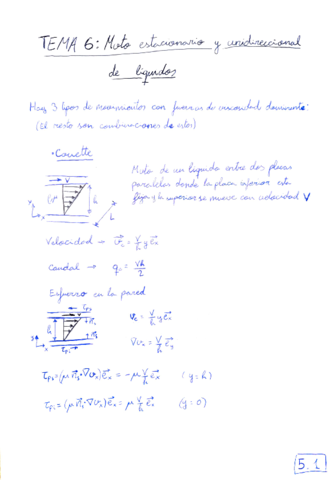 TEMA 6: Mvto estacionario y unidireccional
de líquidos
Hay 3 tipos de movimientos con fuerzas de viscosidad dominante:
(El resto son combinaciones de estos)
• Couette
Mvto de un líquido entre dos placas
paralelas donde la placa inferior está
fija y la superior se mueve con velocidad V
Velocidad → v⃗c = V/h y e⃗x
Caudal → qc = Vh/2
Esfuerzo en la pared
vc = V/h y e⃗x
∇vx = V/h e⃗y
τps = (μ n⃗s·∇vx) e⃗x = -μ V/h e⃗x (y=h)
τpi = (μ n⃗i·∇vx) e⃗x = μ V/h e⃗x (y=0)
5.1